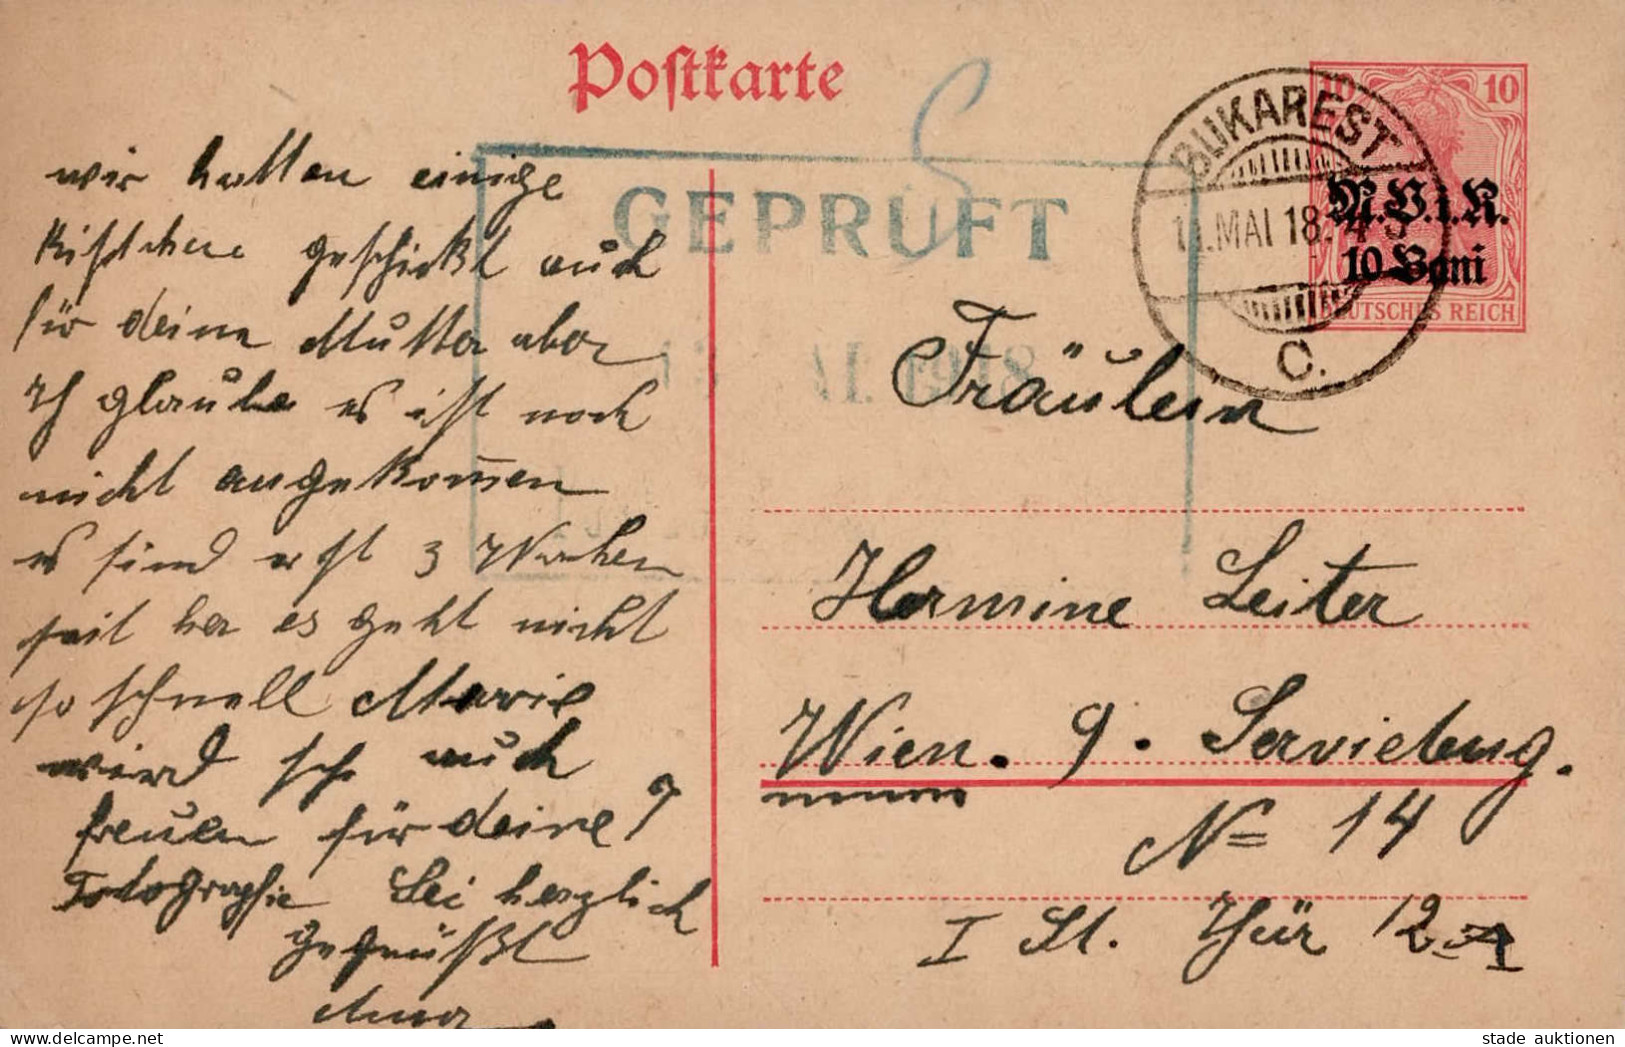 Postkarte
10 10
M.V.i.R.
10 Bani
DEUTSCHES REICH
BUKAREST
MAI 18.
C.
GEPRÜFT
1918
wir hatten einige
Kistchen geschickt auch
für deine Mutter aber
Ich glaube es ist noch
nicht angekom̅en
es sind erst 3 Wochen
seit her es geht nicht
so schnell Marie
wird sich auch
freuen für deine
Fotographie Sei herzlich
gegrüßt
Fräulein
Hermine Leiter
Wien. 9. Servieteng.
No= 14
I St. Thür 12
stade auktionen